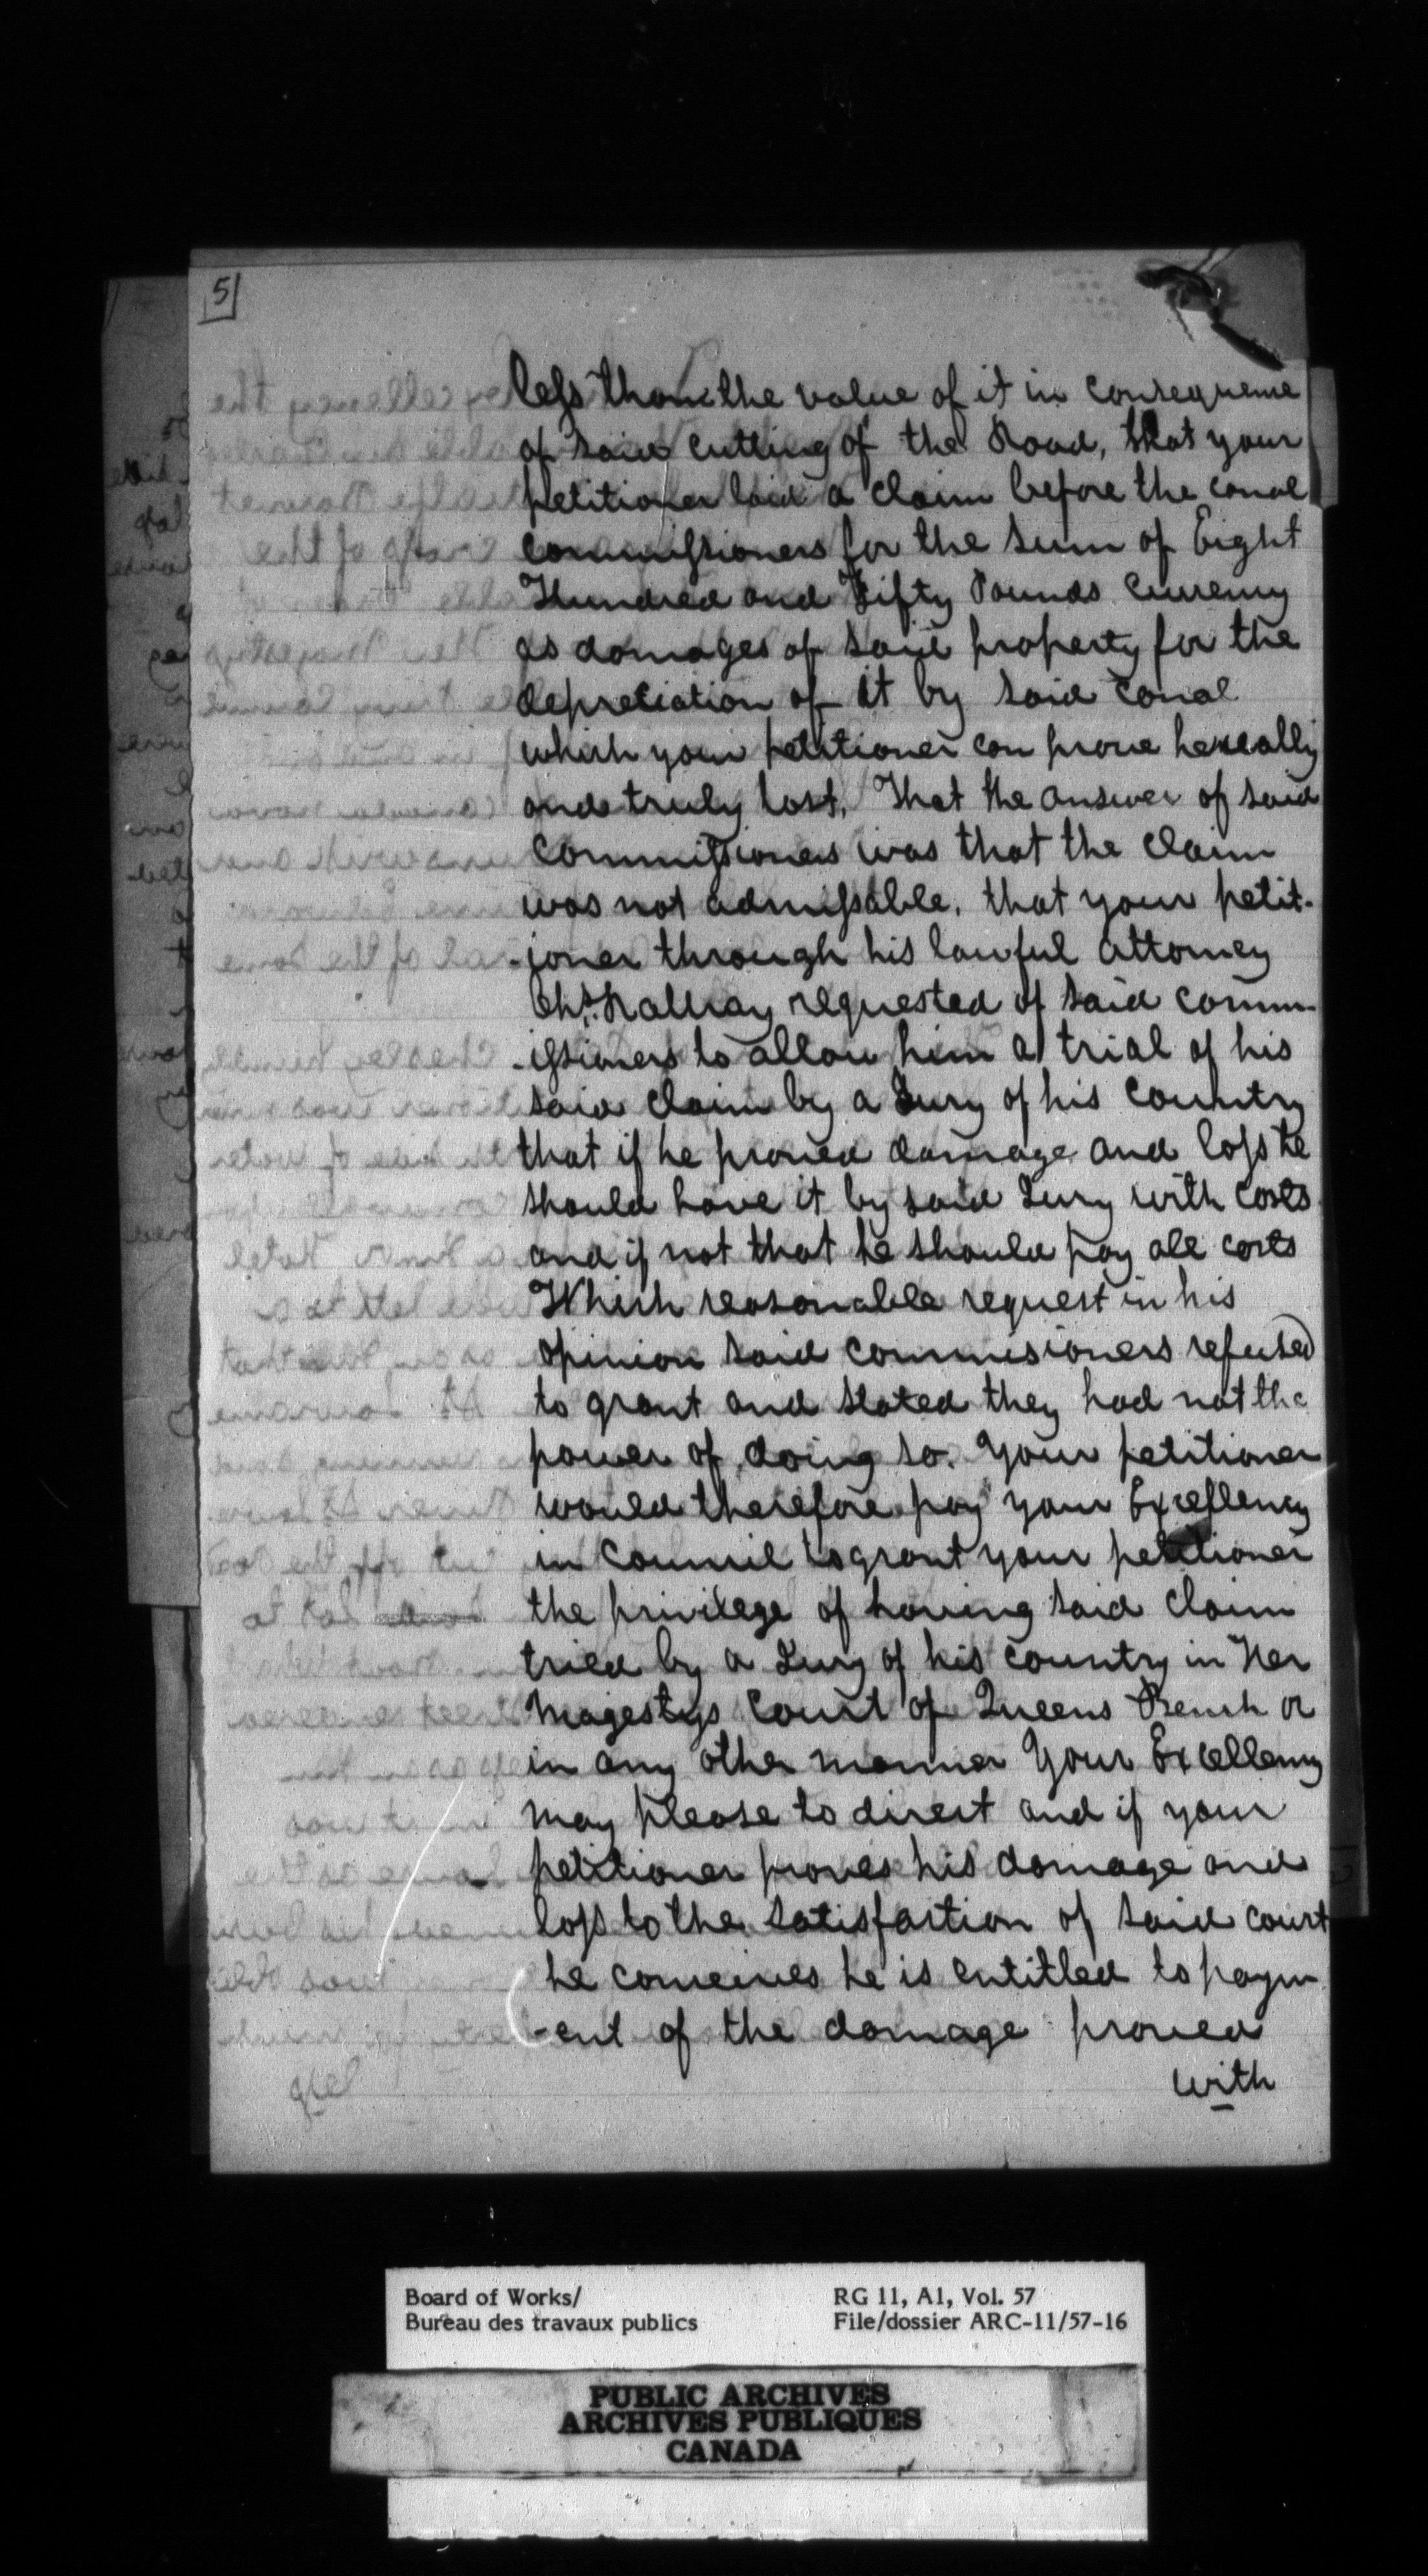 5
less than the value of it in consequence
of said cutting of the Road, that your
petitioner laid a claim before the canal
commissioners for the sum of Eight
Hundred and Fifty Pounds Currency
as damages of said property for the
depretiation of it by said canal
which your petitioner can prove he really
and truly lost. That the answer of said
Commissioners was that the claim
was not admissable, that your petit-
-ioner through his lawful attorney
Chs. requested of said comm-
-issioners to allow him a trial of his
said claim by a Jury of his Country
that if he proved damage and loss he
should have it by said Jury with costs
and if not that he should pay all costs
Which reasonable request in his
opinion said commisioners refused
to grant and stated they had not the
power of doing so. Your petitioner
would therefore pay your Excellency
in Council to grant your petitioner
the privilege of having said claim
tried by a Jury of his country in Her
Magestys Court of Queens Bench or
in any other manner Your Excellency
may please to direct and if your
petitioner proves his damage and
loss to the satisfaction of said court
he conceives he is entitled to paym
-ent of the damage proved
with
Board of Works/
Bureau des travaux publics
RG 11, A1, Vol. 57
File/dossier ARC-11/57-16
PUBLIC ARCHIVES
ARCHIVES PUBLIQUES
CANADA